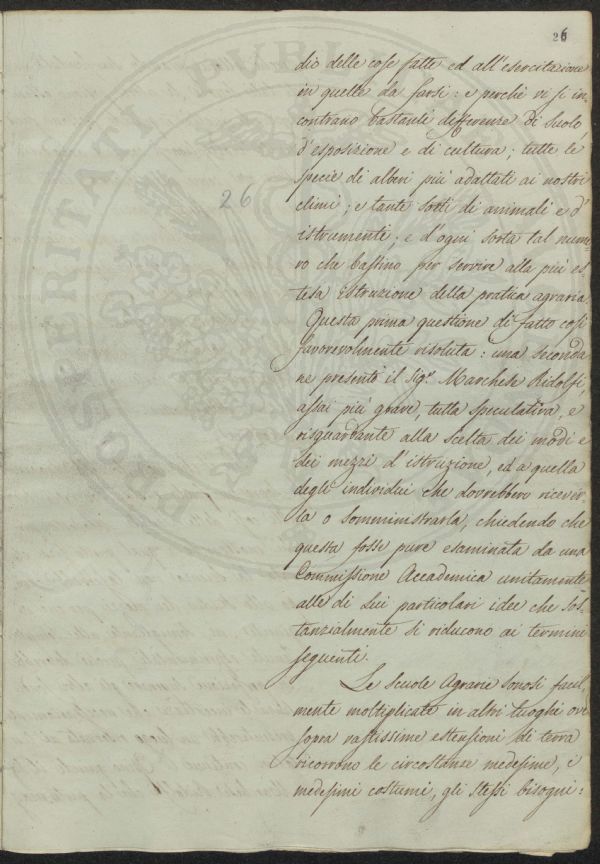 26
dio delle cose fatte ed all'esercitazione
in quelle da farsi: e perchè vi si in-
contrano bastanti differenze di suolo,
d'esposizione e di cultura; tutte le
specie di alberi più adattati ai nostri
climi; e tante sorti di animali e d'
istrumenti; e d'ogni sorta tal nume
ro che bastino per servire alla più es
tesa istruzione della pratica agraria.
Questa prima questione di fatto così
favorevolmente risoluta: una seconda
ne presentò il Sig.r Marchese Ridolfi,
assai più grave, tutta speculativa, e
risguardante alla scelta dei modi e
dei mezzi d'istruzione, ed a quella
degli individui che dovrebbero ricever-
la o somministrarla, chiedendo che
questa fosse pure esaminata da una
Commissione Accademica unitamente
alle di lui particolari idee che sos-
tanzialmente si riducono ai termini
seguenti.
Le Scuole Agrarie sonosi facil
mente moltiplicate in altri luoghi ove
sopra vastissime estensioni di terra
ricorrono le circostanze medesime, i
medesimi costumi, gli stessi bisogni:
26
PROSPERITATI PUBLI